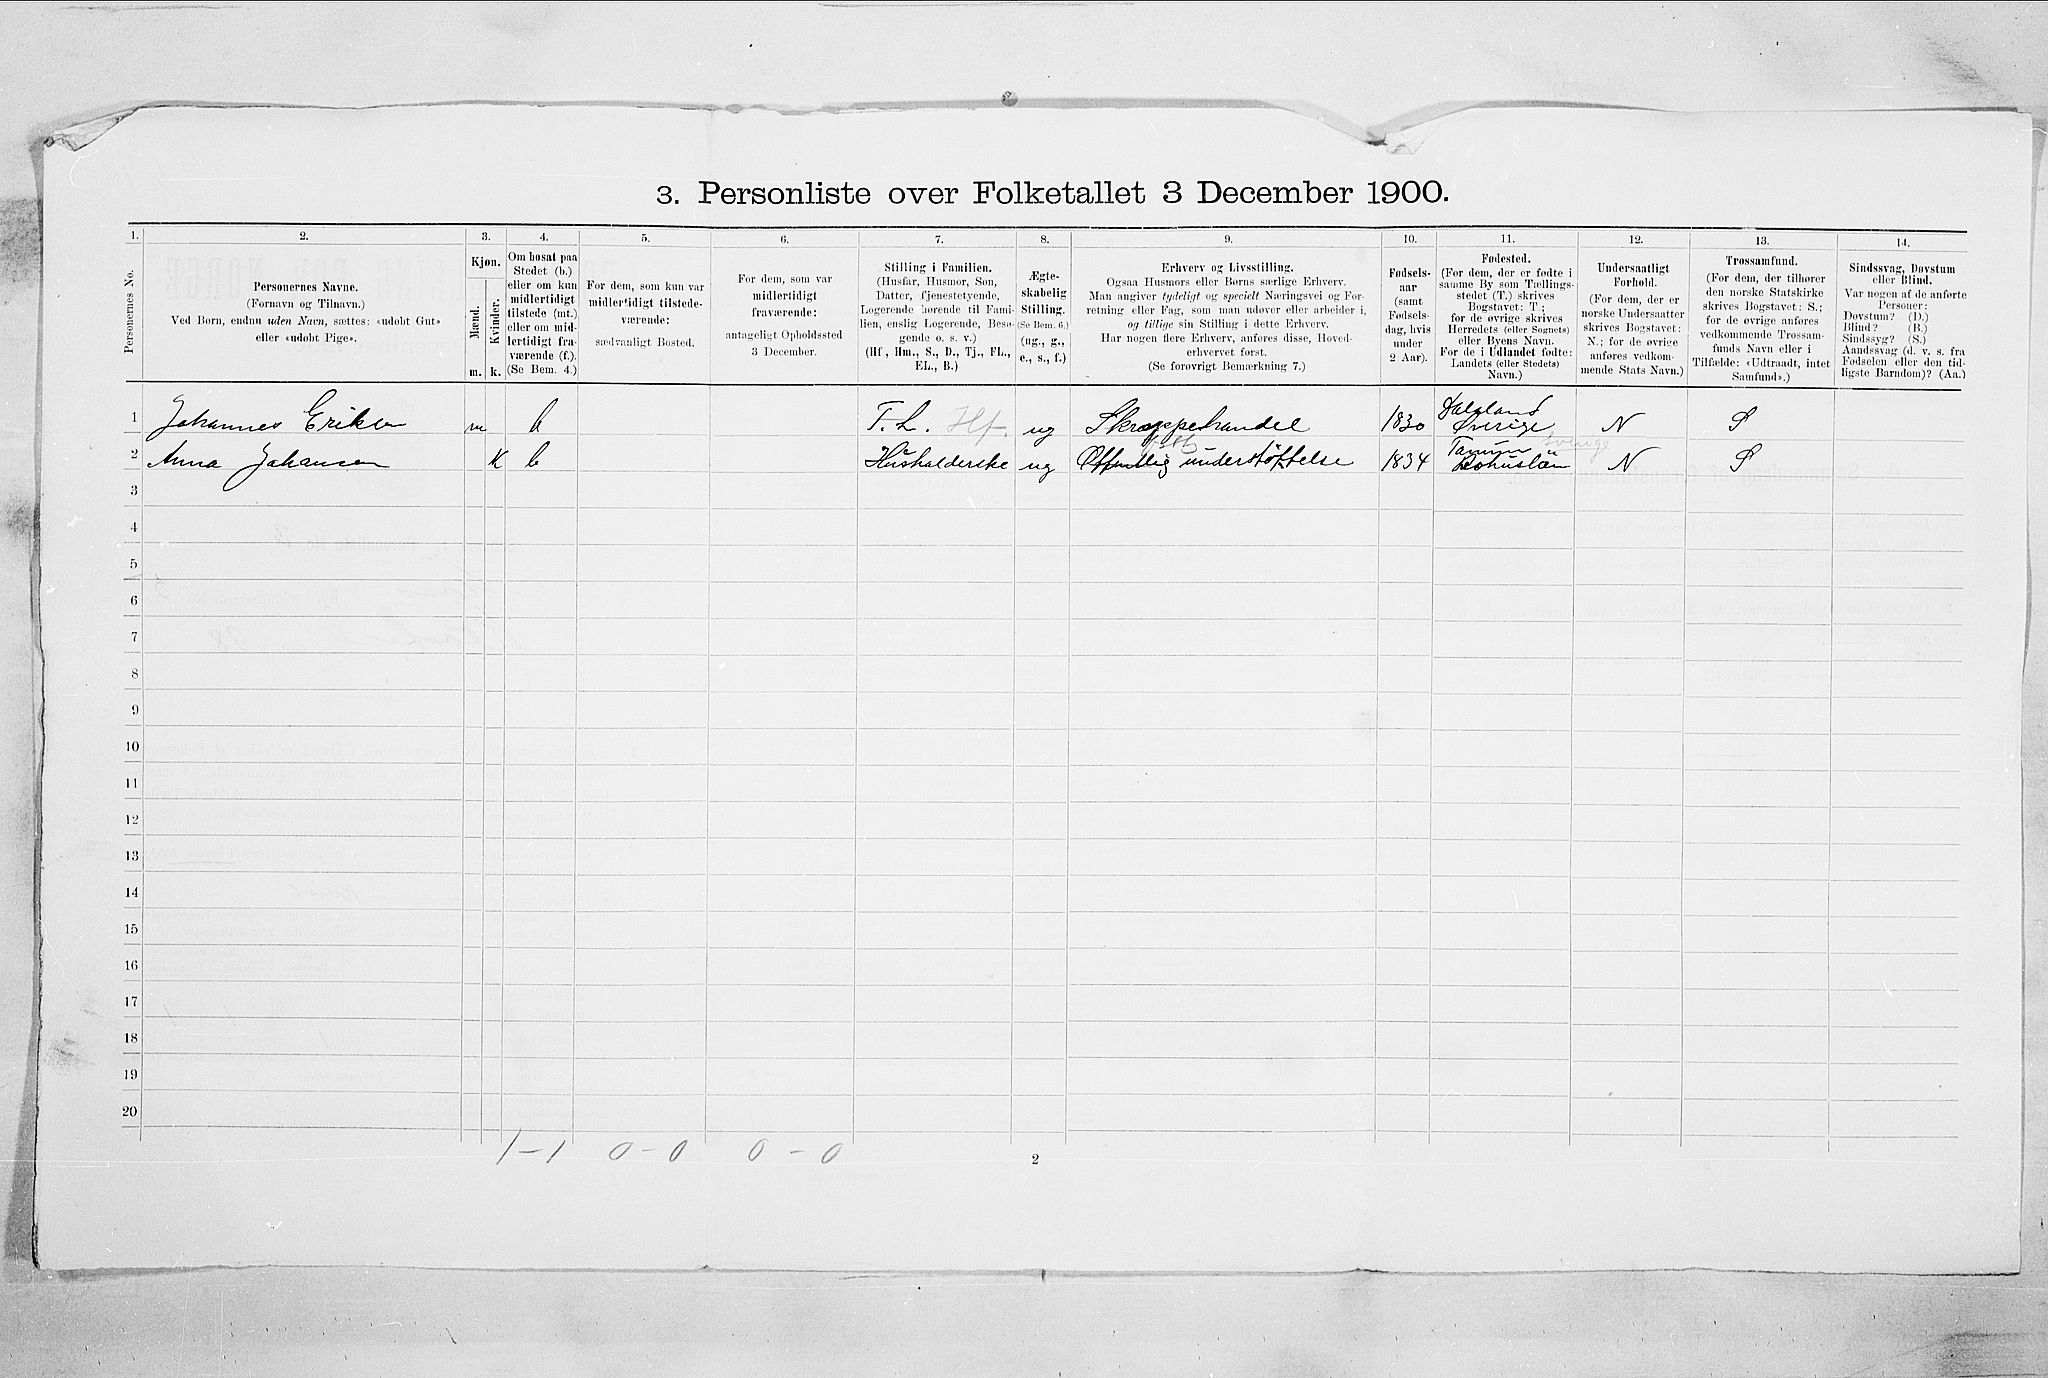 3. Personliste over Folketallet 3 December 1900.
1.
Personernes No.
2.
Personernes Navne.
(Fornavn og Tilnavn.)
Ved Børn, endnu uden Navn, sættes: «udøbt Gut»
eller «udøbt Pige».
3.
Kjøn.
Mænd.
Kvinder.
m.
k.
4.
Om bosat paa
Stedet (b.)
eller om kun
midlertidigt
tilstede (mt.)
eller om mid-
lertidigt fra-
værende (f.).
(Se Bem. 4.)
5.
For dem, som kun var
midlertidigt tilstede-
værende:
sædvanligt Bosted.
6.
For dem, som var
midlertidigt
fraværende:
antageligt Opholdssted
3 December.
7.
Stilling i Familien.
(Husfar, Husmor, Søn,
Datter, tjenestetyende,
Logerende hørende til Fami-
lien, enslig Logerende, Besø-
gende o. s. v.)
(Hf., Hm., S., D., Tj., FL.,
EL., B.)
8.
Ægte-
skabelig
Stilling.
(Se Bem. 6.)
(ug., g.,
e., s., f.)
9.
Erhverv og Livsstilling.
Ogsaa Husmors eller Børns særlige Erhverv.
Man angiver tydeligt og specielt Næringsvei og For-
retning eller Fag, som man udøver eller arbeider i,
og tillige sin Stilling i dette Erhverv.
Har nogen flere Erhverv, anføres disse, Hoved-
erhvervet først.
(Se forøvrigt Bemærkning 7.)
10.
Fødsels-
aar
(samt
Fødsels-
dag, hvis
under
2 Aar).
11.
Fødested.
(For dem, der er fødte i
samme By som Tællings-
stedet (T.) skrives
Bogstavet: T.;
for de øvrige skrives
Herredets (eller Sognets)
eller Byens Navn.
For de i Udlandet fødte:
Landets (eller Stedets)
Navn.)
12.
Undersaatligt
Forhold.
(For dem, der er
norske Undersaatter
skrives Bogstavet:
N.; for de øvrige
anføres vedkom-
mende Stats Navn.)
13.
Trossamfund.
(For dem, der tilhører
den norske Statskirke
skrives Bogstavet: S.;
for de øvrige anføres
vedkommende Trossam-
funds Navn eller i
Tilfælde: «Udtraadt, intet
Samfund».)
14.
Sindssvag, Døvstum
eller Blind.
Var nogen af de anførte
Personer:
Døvstum? (D.)
Blind? (B.)
Sindssyg? (S.)
Aandssvag (d. v. s. fra
Fødselen eller den tid-
ligste Barndom)? (Aa.)
1 Johannes Eriksen m b T. L. Hf. ug Skrappehandel 1830 Dalsland Sverige N S
2 Anna Johansen K b Husholderske ug Offentlig understøttelse 1834 Tanum Bohuslän Sverige N S
3
4
5
6
7
8
9
10
11
12
13
14
15
16
17
18
19
20
1-1 0-0 0-0
2